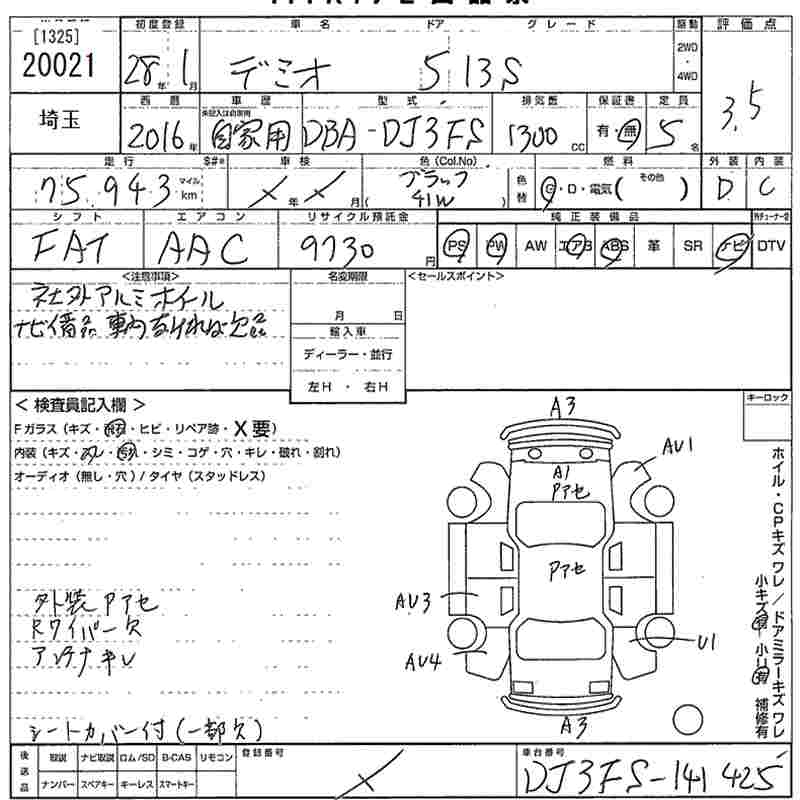 [1325]
20021
初度登録 車名 ドア グレード 駆動 評価点
28年 1月 デミオ 5 13S 2WD・4WD 3.5
埼玉
西暦 車歴 型式 排気量 保証書 定員
2016年 未記入は自家用 自家用 DBA-DJ3FS 1300cc 有・無 5名
走行 $#* 車検 色(Col.No) 燃料 外装 内装
75,943 マイル km 年 月 ブラック 41W 色替 G・D・電気( その他 ) D C
シフト エアコン リサイクル預託金 純正装備品
FAT AAC 9730円 PS PW AW エアB ABS 革 SR ナビ DTV
<注意事項> 名変期限 <セールスポイント>
社外アルミホイール
月 日
輸入車
ディーラー・並行
左H ・ 右H
<検査員記入欄> キーロック
Fガラス(キズ・ ・ヒビ・リペア跡・X要)
内装(キズ・ ・ ・シミ・コゲ・穴・キレ・破れ・割れ)
オーディオ(無し・穴)/タイヤ(スタッドレス)
A3
AU1
A1
Pアセ
Pアセ
AU3
U1
AU4
A3
外装Pアセ
Rワイパー欠
アンテナキレ
シートカバー付(一部欠)
ホイル・CPキズ ワレ/ドアミラーキズ ワレ
小キズ有 小U有 補修有
後送品 取説 ナビ取説 ロム/SD B-CAS リモコン 登録番号 車台番号
ナンバー スペアキー キーレス スマートキー DJ3FS-141425